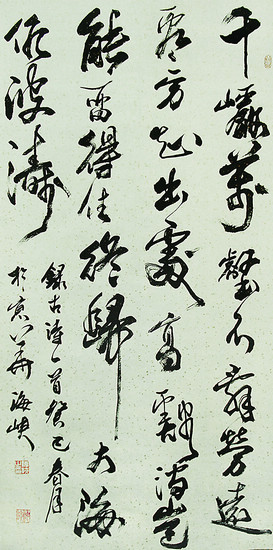 千巖萬壑不辭勞遠
看方知出處高谿澗豈
能留得住終歸大海
作波濤
錄古詩一首癸巳春月
於京華海峡